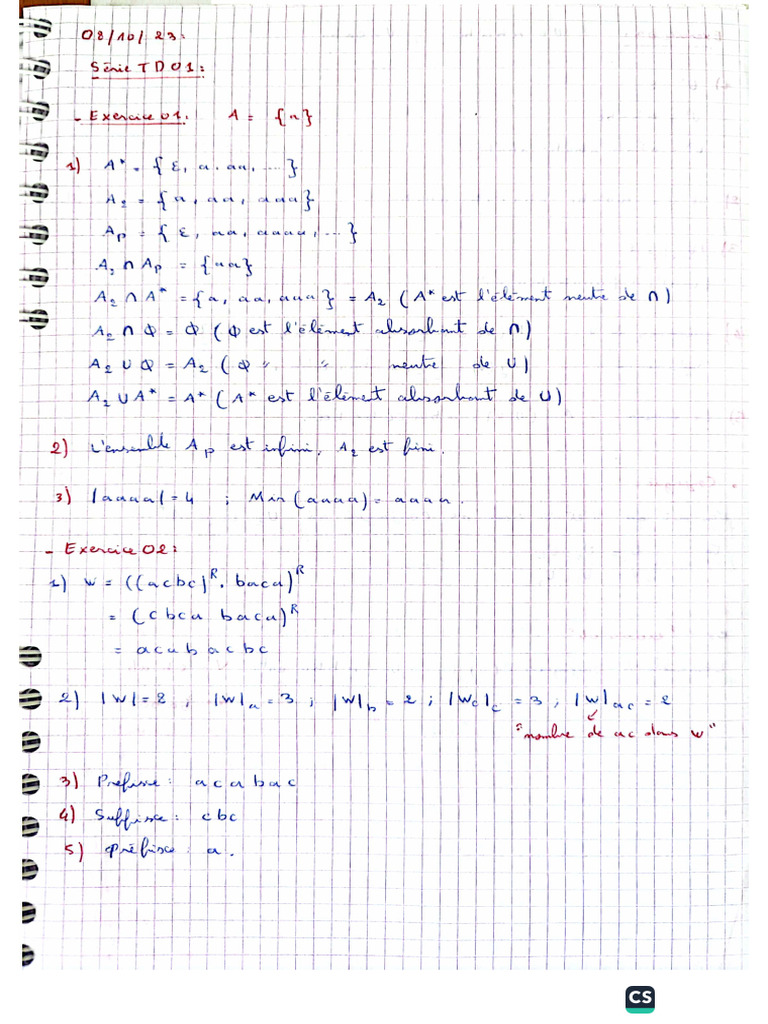 08/10/23:
Série TD01:
- Exercice 01. A = {a}
1) A* = {ε, a, aa, ...}
A₂ = {a, aa, aaa}
Ap = {ε, aa, aaaa, ...}
A₂ ∩ Ap = {aa}
A₂ ∩ A* = {a, aa, aaa} = A₂ (A* est l'élément neutre de ∩)
A₂ ∩ Φ = Φ (Φ est l'élément absorbant de ∩)
A₂ ∪ Φ = A₂ (Φ " " neutre de ∪)
A₂ ∪ A* = A* (A* est l'élément absorbant de ∪)
2) L'ensemble Ap est infini, A₂ est fini.
3) |aaaa| = 4 ; Min(aaaa) = aaaa.
- Exercice 02:
1) w = ((acbc)ᴿ. baca)ᴿ
= (cbca baca)ᴿ
= acabacbc
2) |W| = 8 ; |W|a = 3 ; |W|b = 2 ; |Wc|c = 3 ; |W|ac = 2
"nombre de ac dans w"
3) Préfixe : acabac
4) Suffixe : cbc
5) préfixe : a.
CS